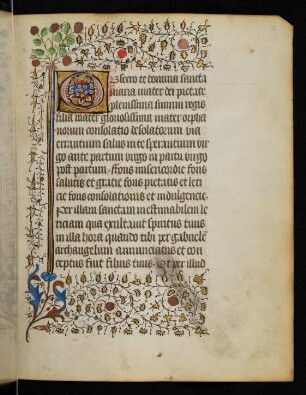 Obsecro te domina sancta
maria mater dei pietate
plenissima summi regis
filia mater gloriosissima mater orpha
norum consolatio desolatorum via
errantium salus in te sperantium vir
go ante partum virgo in partu virgo
post partum. ffons misericordie fons
salutis et gratie fons pietatis et leti
cie fons consolationis et indulgencie.
per illam sanctam inestimabilem le
ticiam qua exultavit spiritus tuus
in illa hora quando tibi per gabrielem
archangelum annunciatus et con
ceptus fuit filius tuus. Et per illud